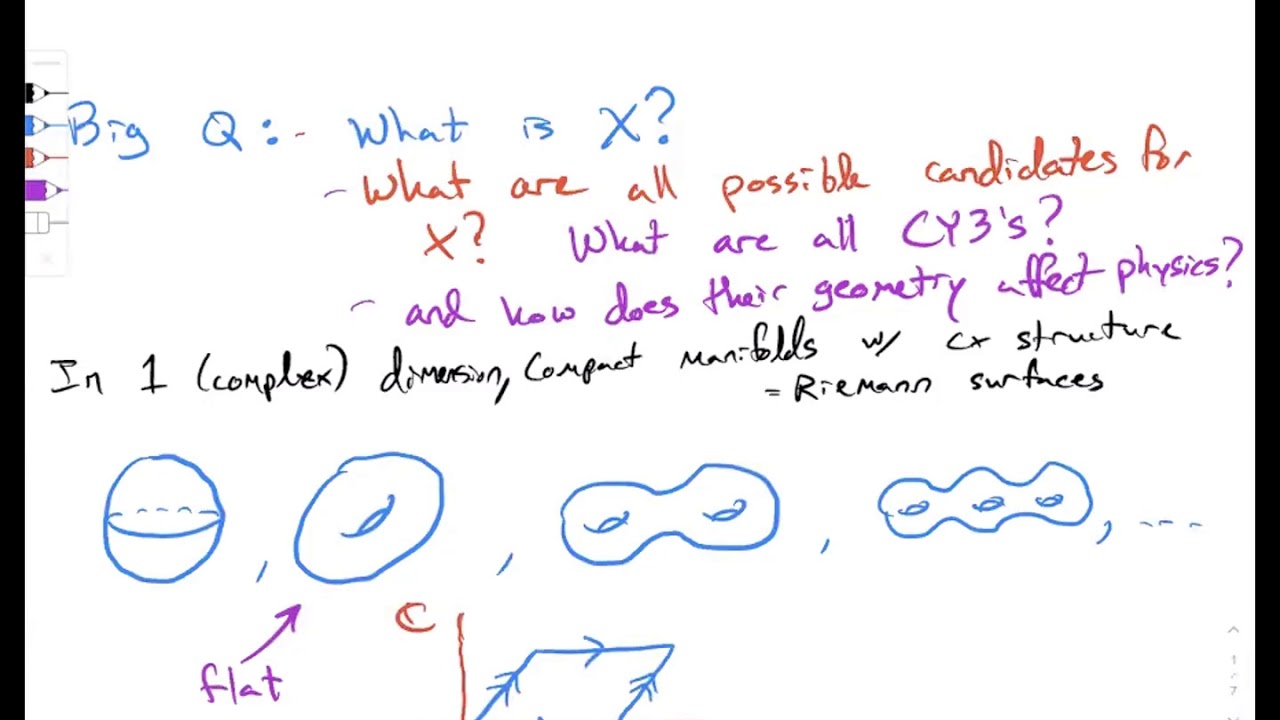 Big Q: - What is X?
- What are all possible candidates for
X? What are all CY3's?
- and how does their geometry affect physics?
In 1 (complex) dimension, Compact manifolds w/ cx structure
= Riemann surfaces
, , , , ----
C
flat
1
7